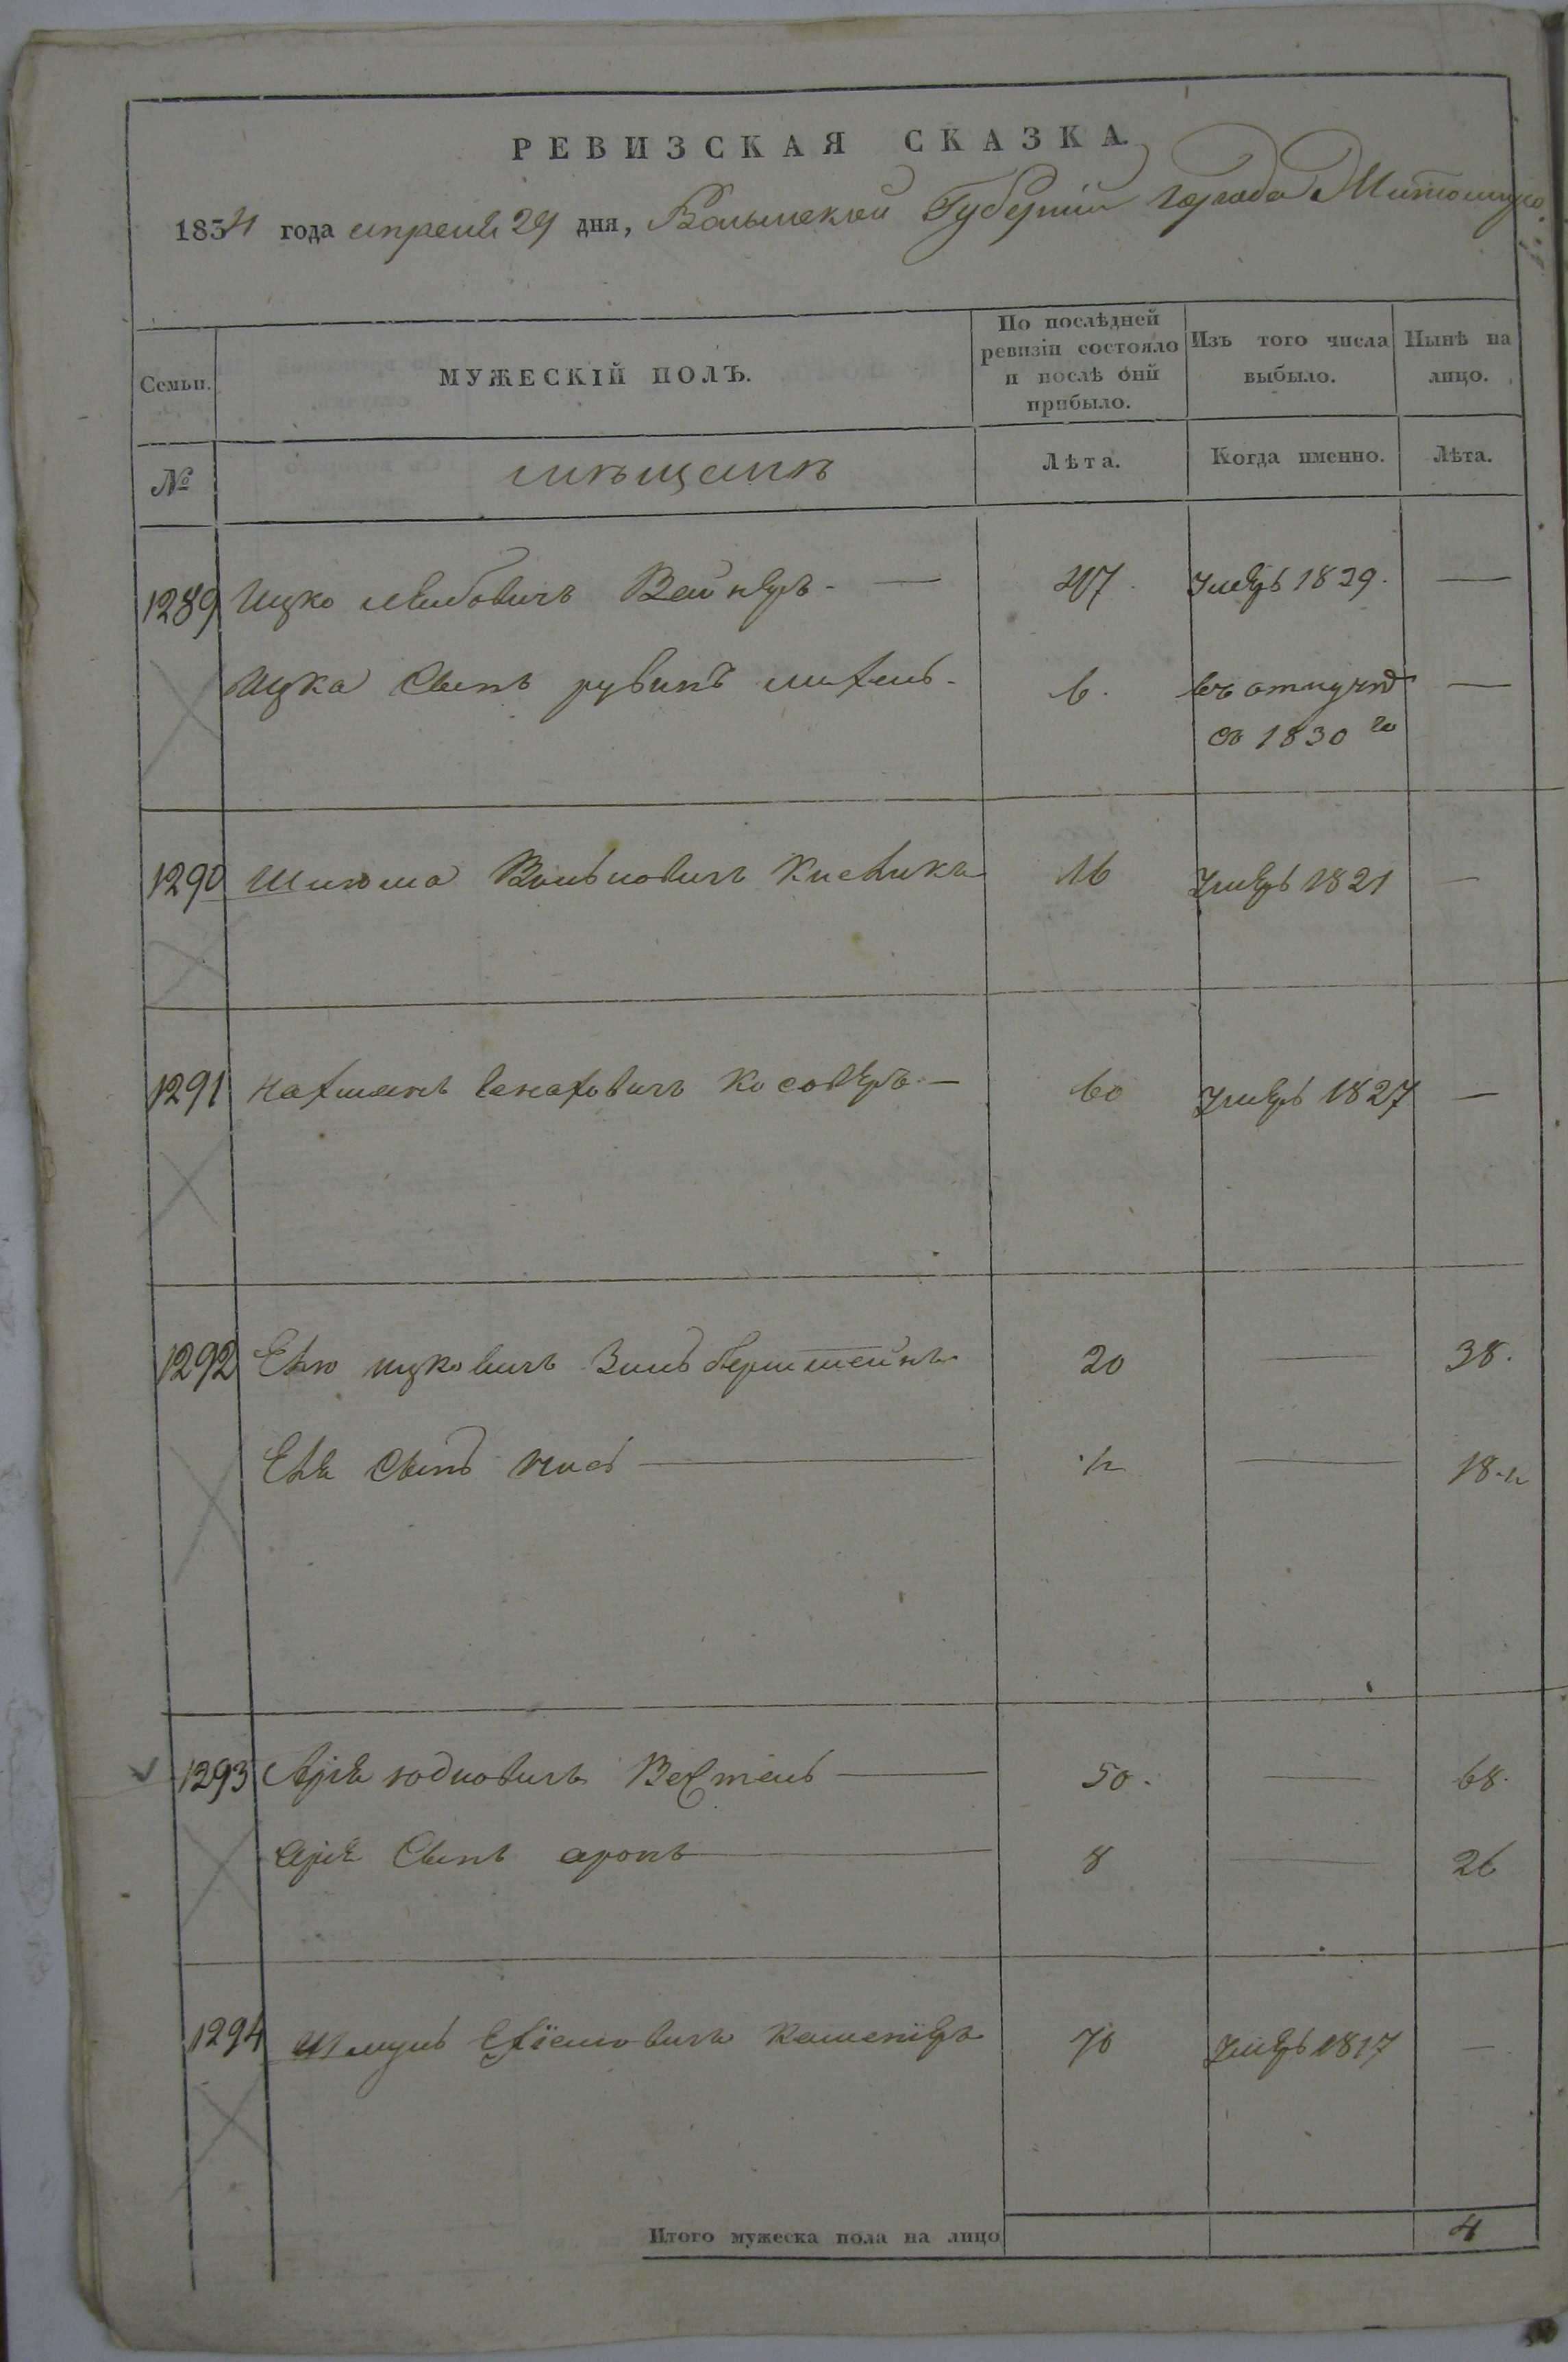 РЕВИЗСКАЯ СКАЗКА
1834 года апреля 29 дня, Волынской Губернии города Житомира
Семьи.
МУЖЕСКІЙ ПОЛЪ.
По послѣдней ревизіи состояло и послѣ оной прибыло.
Изъ того числа выбыло.
Нынѣ на лицо.
№
мѣщанѣ
Лѣта.
Когда именно.
Лѣта.
1289 Ицко Лейбовичъ Вайнеръ — 47. умеръ 1839. —
Ицка Сынъ рувинъ михель — 6. въ отлучкѣ —
съ 1830 го
1290 Шлиома Вольковичъ 16 умеръ 1821 —
1291 Нахманъ Косоверъ — 60 умеръ 1827 —
1292 Ельо ицковичъ Зильберштейнъ 20 — 38.
Еля Сынъ — ½ — 18 ½
1293 Аріе юдковичъ Вехтель — 50. — 68.
Аріе Сынъ аронъ — 8 — 26
1294 Шмуль Ехіеловичъ Каменіеръ 70 умеръ 1817 —
Итого мужеска пола на лицо 4